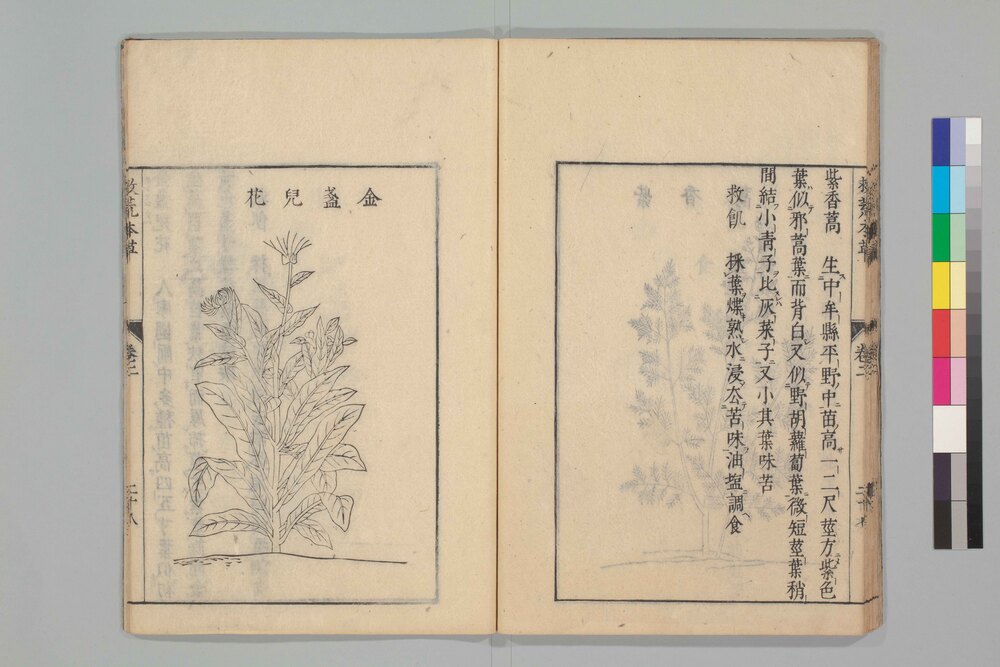 紫香蒿 生中牟縣平野中苗高一二尺莖方紫色
葉似邪蒿葉而背白又似野胡蘿蔔葉微短莖葉稍
間結小青子比灰菜子又小其葉味苦
救飢 採葉煠熟水浸去苦味油塩調食
金盞兒花
救荒本草
卷二